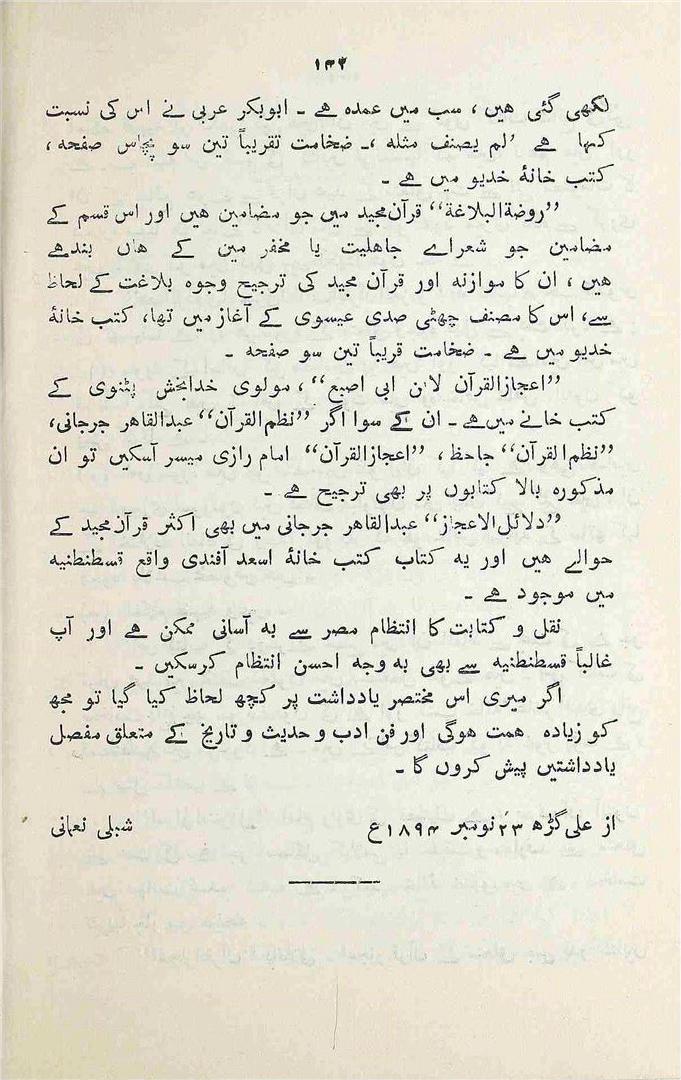 ۱۴۲
لکھی گئی ہیں ، سب میں عمدہ ہے ۔ ابوبکر عربی نے اس کی نسبت
کہا ہے ’لم یصنف مثلہ ،۔ ضخامت تقریباً تین سو پچاس صفحہ ،
کتب خانۂ خدیو میں ہے ۔
’’روضۃ البلاغۃ‘‘ قرآن مجید میں جو مضامین ہیں اور اس قسم کے
مضامین جو شعراے جاهلیت یا مخضرمین کے ہاں بندھے
ہیں ، ان کا موازنہ اور قرآن مجید کی ترجیح وجوہ بلاغت کے لحاظ
سے، اس کا مصنف چھٹی صدی عیسوی کے آغاز میں تھا، کتب خانۂ
خدیو میں ہے ۔ ضخامت قریباً تین سو صفحہ ۔
’’اعجاز القرآن لابن ابی اصبع‘‘ ، مولوی خدابخش پٹنوی کے
کتب خانے میں ہے ۔ ان کے سوا اگر ’’نظم القرآن‘‘ عبدالقاهر جرجانی،
’’نظم القرآن‘‘ جاحظ ، ’’اعجاز القرآن‘‘ امام رازی میسر آسکیں تو ان
مذکورہ بالا کتابوں پر بھی ترجیح ہے ۔
’’دلائل الاعجاز‘‘ عبدالقاهر جرجانی میں بھی اکثر قرآن مجید کے
حوالے ہیں اور یہ کتاب کتب خانۂ اسعد آفندی واقع قسطنطنیہ
میں موجود ہے ۔
نقل و کتابت کا انتظام مصر سے بہ آسانی ممکن ہے اور آپ
غالباً قسطنطنیہ سے بھی بہ وجہ احسن انتظام کرسکیں ۔
اگر میری اس مختصر یادداشت پر کچھ لحاظ کیا گیا تو مجھ
کو زیادہ ہمت ہوگی اور فن ادب و حدیث و تاریخ کے متعلق مفصل
یادداشتیں پیش کروں گا ۔
از علی گڑھ ۲۳ نومبر ۱۸۹۴ع شبلی نعمانی